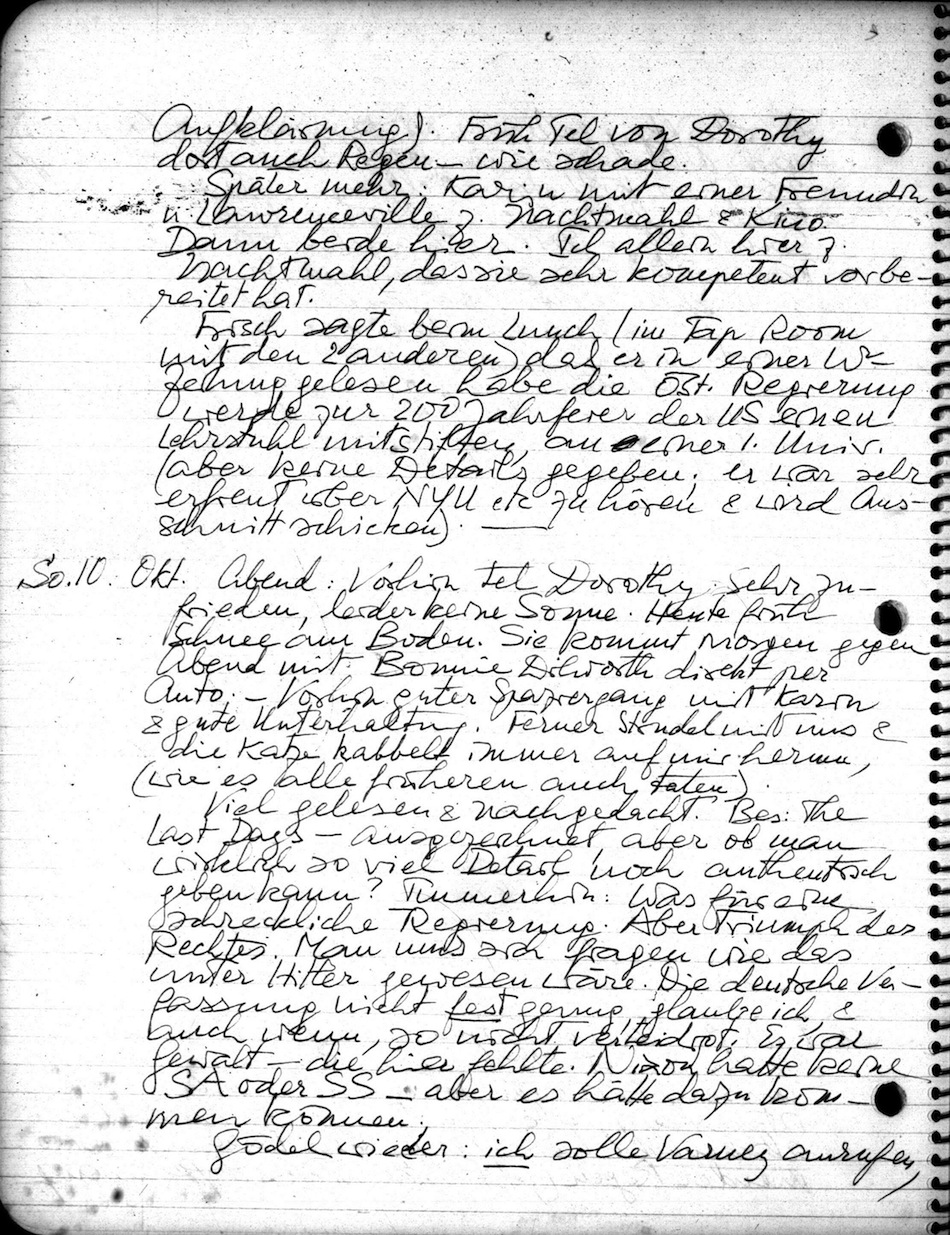 Aufklärung). Früh Tel von Dorothy
dort auch Regen – wie schade.
Später mehr. Karin mit einer Freundin
n. Lawrenceville z. Nachtmahl & Kino.
Dann beide hier. Ich allein hier z.
Nachtmahl, das sie sehr kompetent vorbe-
reitet hat.
Frisch sagte beim Lunch (im Tap Room
mit den 2 anderen) daß er in einer
gelesen habe die Öst. Regierung
werde zur 200 Jahrfeier der US einen
Lehrstuhl mitstiften, an einer 1. Univ.
(aber keine Details gegeben; er war sehr
erfreut über NYU etc zu hören & wird Aus-
schnitt schicken). —
So. 10. Okt. Abend: Vorhin Tel Dorothy sehr zu-
frieden, leider keine Sonne. Heute früh
Schnee am Boden. Sie kommt Morgen gegen
Abend mit Bonnie Dilworth direkt per
Auto. – Vorhin guter Spaziergang mit Karin
& gute Unterhaltung. Ferner mit uns &
die Katze kabbelt immer auf mir herum,
(wie es alle früheren auch taten).
Viel gelesen & nachgedacht. Bes: The
Last Days – ausgezeichnet, aber ob man
wirklich so viel Detail noch authentisch
geben kann? Immerhin: Was für eine
schreckliche Regierung. Aber Triumph des
Rechtes. Man muss sich fragen wie das
unter Hitler gewesen wäre. Die deutsche Ver-
fassung nicht fest genug, glaube ich, &
auch wenn, so nicht verteidigt. Es war
Gewalt – die hier fehlte. Nixon hatte keine
SA oder SS – aber es hätte dazu kom-
men können.
Gödel wieder: ich solle Varney anrufen,